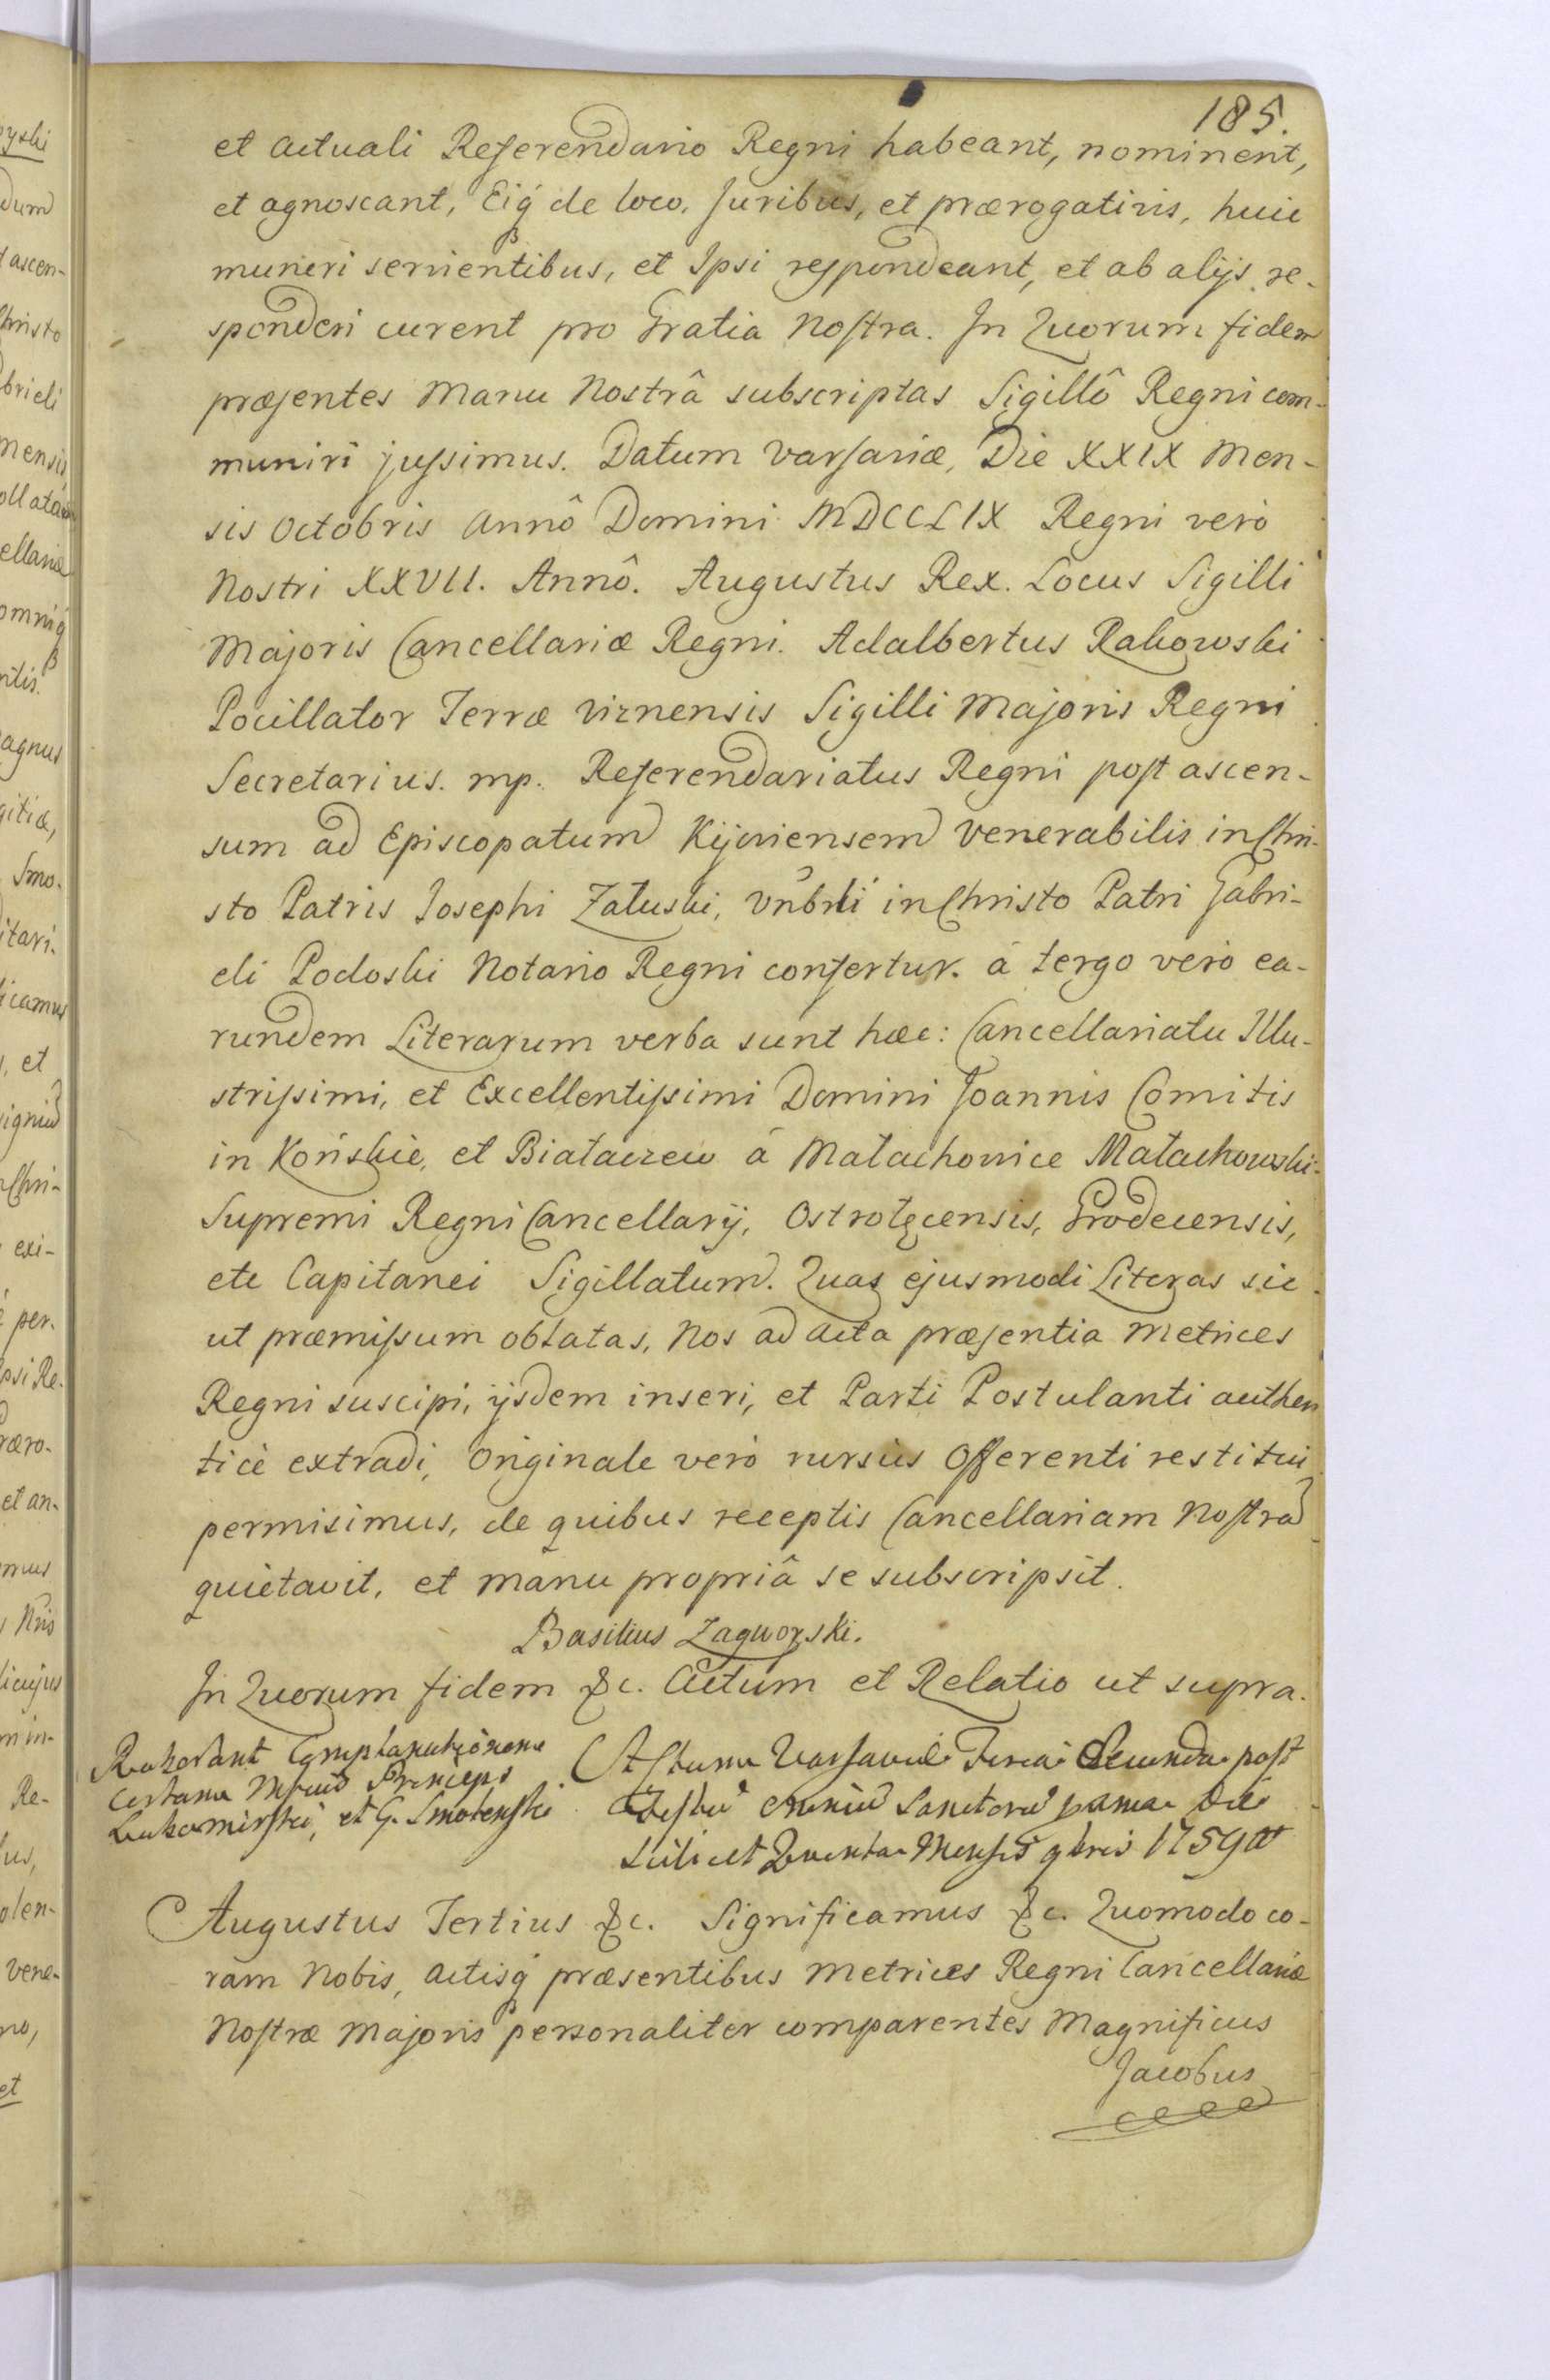 185.
et actuali Referendario Regni habeant, nominent,
et agnoscant, Eiq́ de loco, Juribus, et prærogativis, huic
muneri servientibus, et Ipsi respondeant, et ab alijs re-
sponderi curent pro Gratia Nostra. In Quorum fidem
præsentes Manu Nostrâ subscriptas Sigillô Regni com-
muniri jussimus. Datum Varsaviæ, Die XXIX Men-
sis Octobris Annô Domini MDCCLIX Regni verò
Nostri XXVII. Annô. Augustus Rex. Locus Sigilli
Majoris Cancellariæ Regni. Adalbertus Rakowski
Pocillator Terræ Viznensis Sigilli Majoris Regni
Secretarius. mp. Referendariatus Regni post ascen-
sum ad Episcopatum Kijoviensem Venerabilis in Chri-
sto Patris Josephi Załuski, Vnbrli in Christo Patri Gabri-
eli Podoski Notario Regni confertur. à tergo verò ea-
rundem Literarum verba sunt hæc: Cancellariatu Illu-
strissimi, et Excellentissimi Domini Joannis Comitis
in Końskie, et Białaczew à Małachowice Małachowski.
Supremi Regni Cancellarij, Ostrołęcensis, Grodecensis,
etc Capitanei Sigillatum. Quas ejusmodi Literas sic
ut præmissum oblatas, Nos ad Acta præsentia Metrices
Regni suscipi, ijsdem inseri, et Parti Postulanti authen
ticè extradi, Originale verò rursus Offerenti restitui
permisimus, de quibus receptis Cancellariam Nostrã
quietavit, et manu propriâ se subscripsit.
Basilius Zagworski.
In Quorum fidem &c. Actum et Relatio ut supra.
Roborant Complanationem
certam Princeps
Lubomirski, et G. Smoleński.
Actum Varsaviæ Feria Secunda post
Festũ Omniũ Sanctorũ prima die
scilicet Quinta Mensis 9bris 1759
Augustus Tertius &c. Significamus &c. Quomodo co-
ram Nobis, Actisq́ præsentibus Metrices Regni Cancellariæ
Nostræ Majoris personaliter comparentes Magnificus
Jacobus